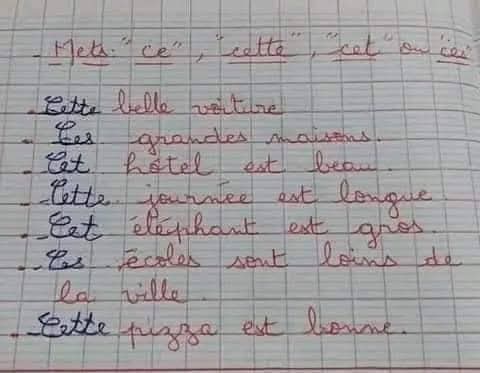 - Mets "ce", "cette", "cet" ou "ces"
- Cette belle voiture
- Ces grandes maisons.
- Cet hôtel est beau.
- Cette journée est longue.
- Cet éléphant est gros.
- Ces écoles sont loins de
la ville.
- Cette pizza est bonne.